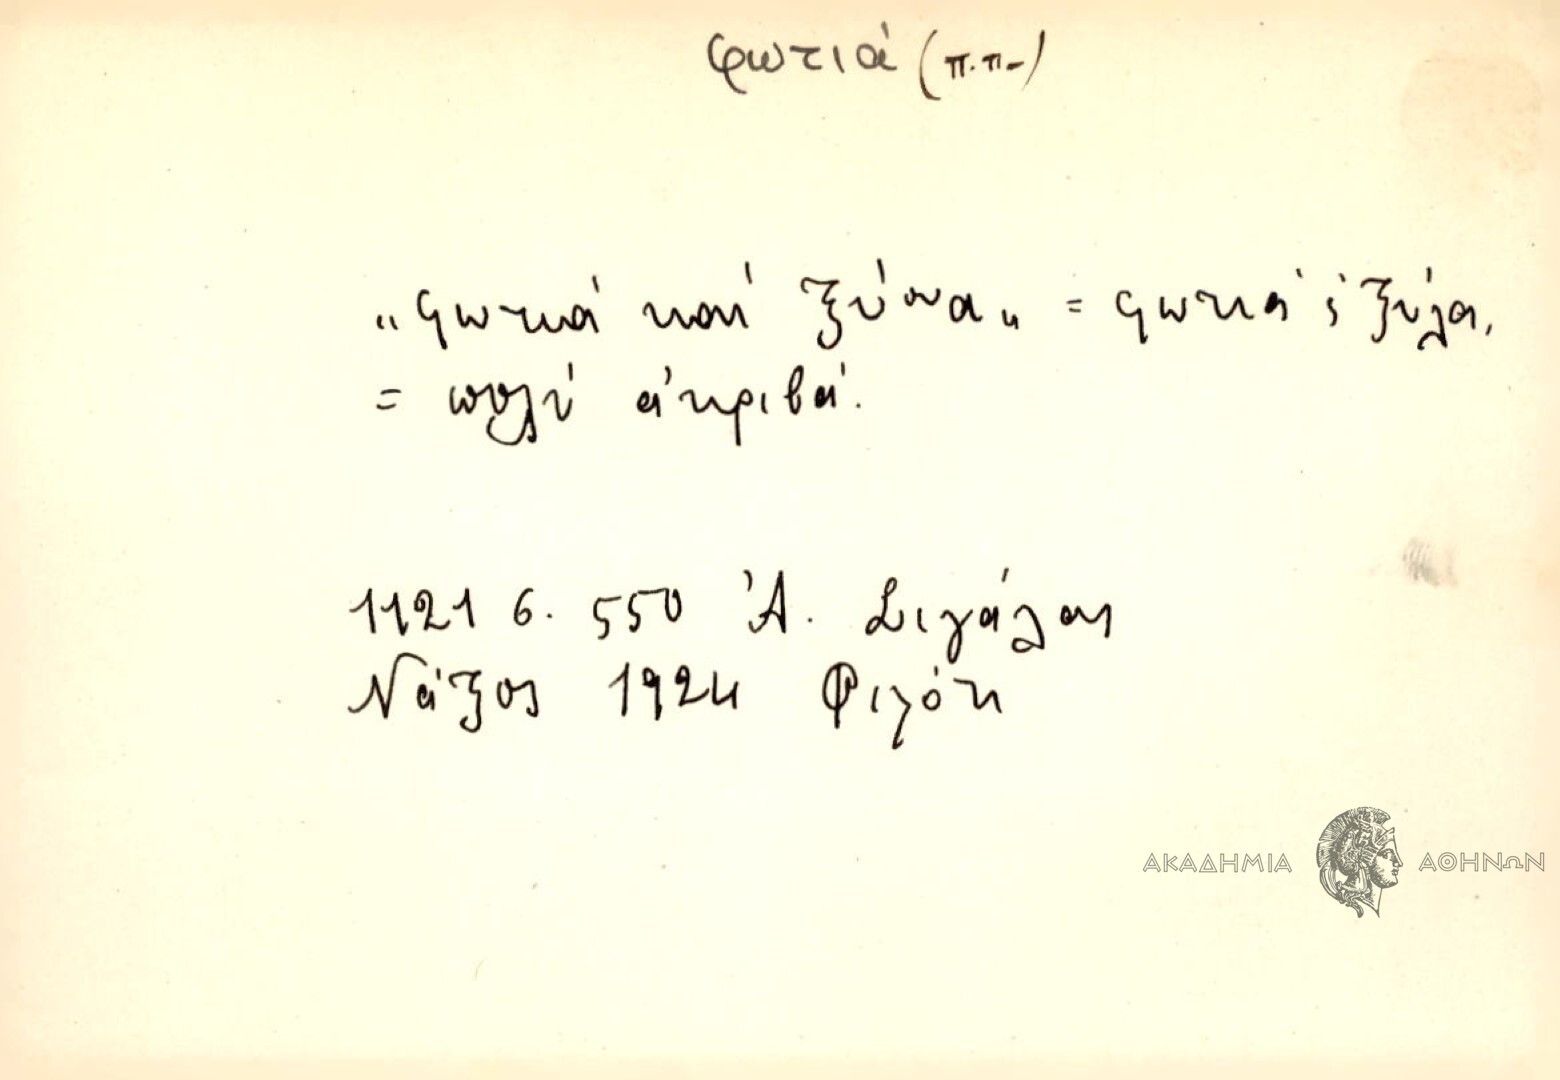 φωτιά (π.π-)
"φωτιά καί ξύυα" = φωτιά ϛ ξύλα,
= πολύ ἀκριβά.
1121 σ. 550 Ἀ. Σιγάλας
Νάξος 1924 Φιλότι
ΑΚΑΔΗΜΙΑ ΑΘΗΝΩΝ